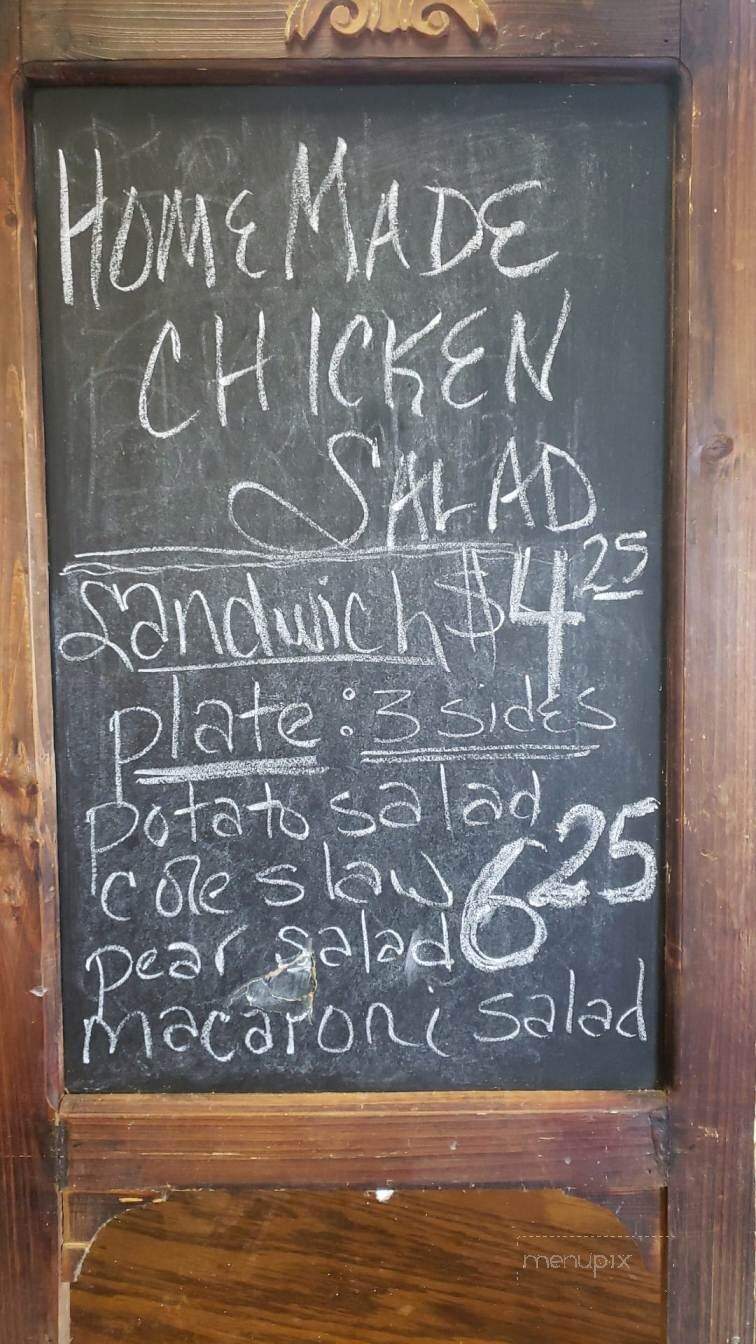 HOMEMADE
CHICKEN
SALAD
Sandwich $4 25
plate: 3 sides
potato salad
cole slaw 6 25
pear salad
macaroni salad
menupix